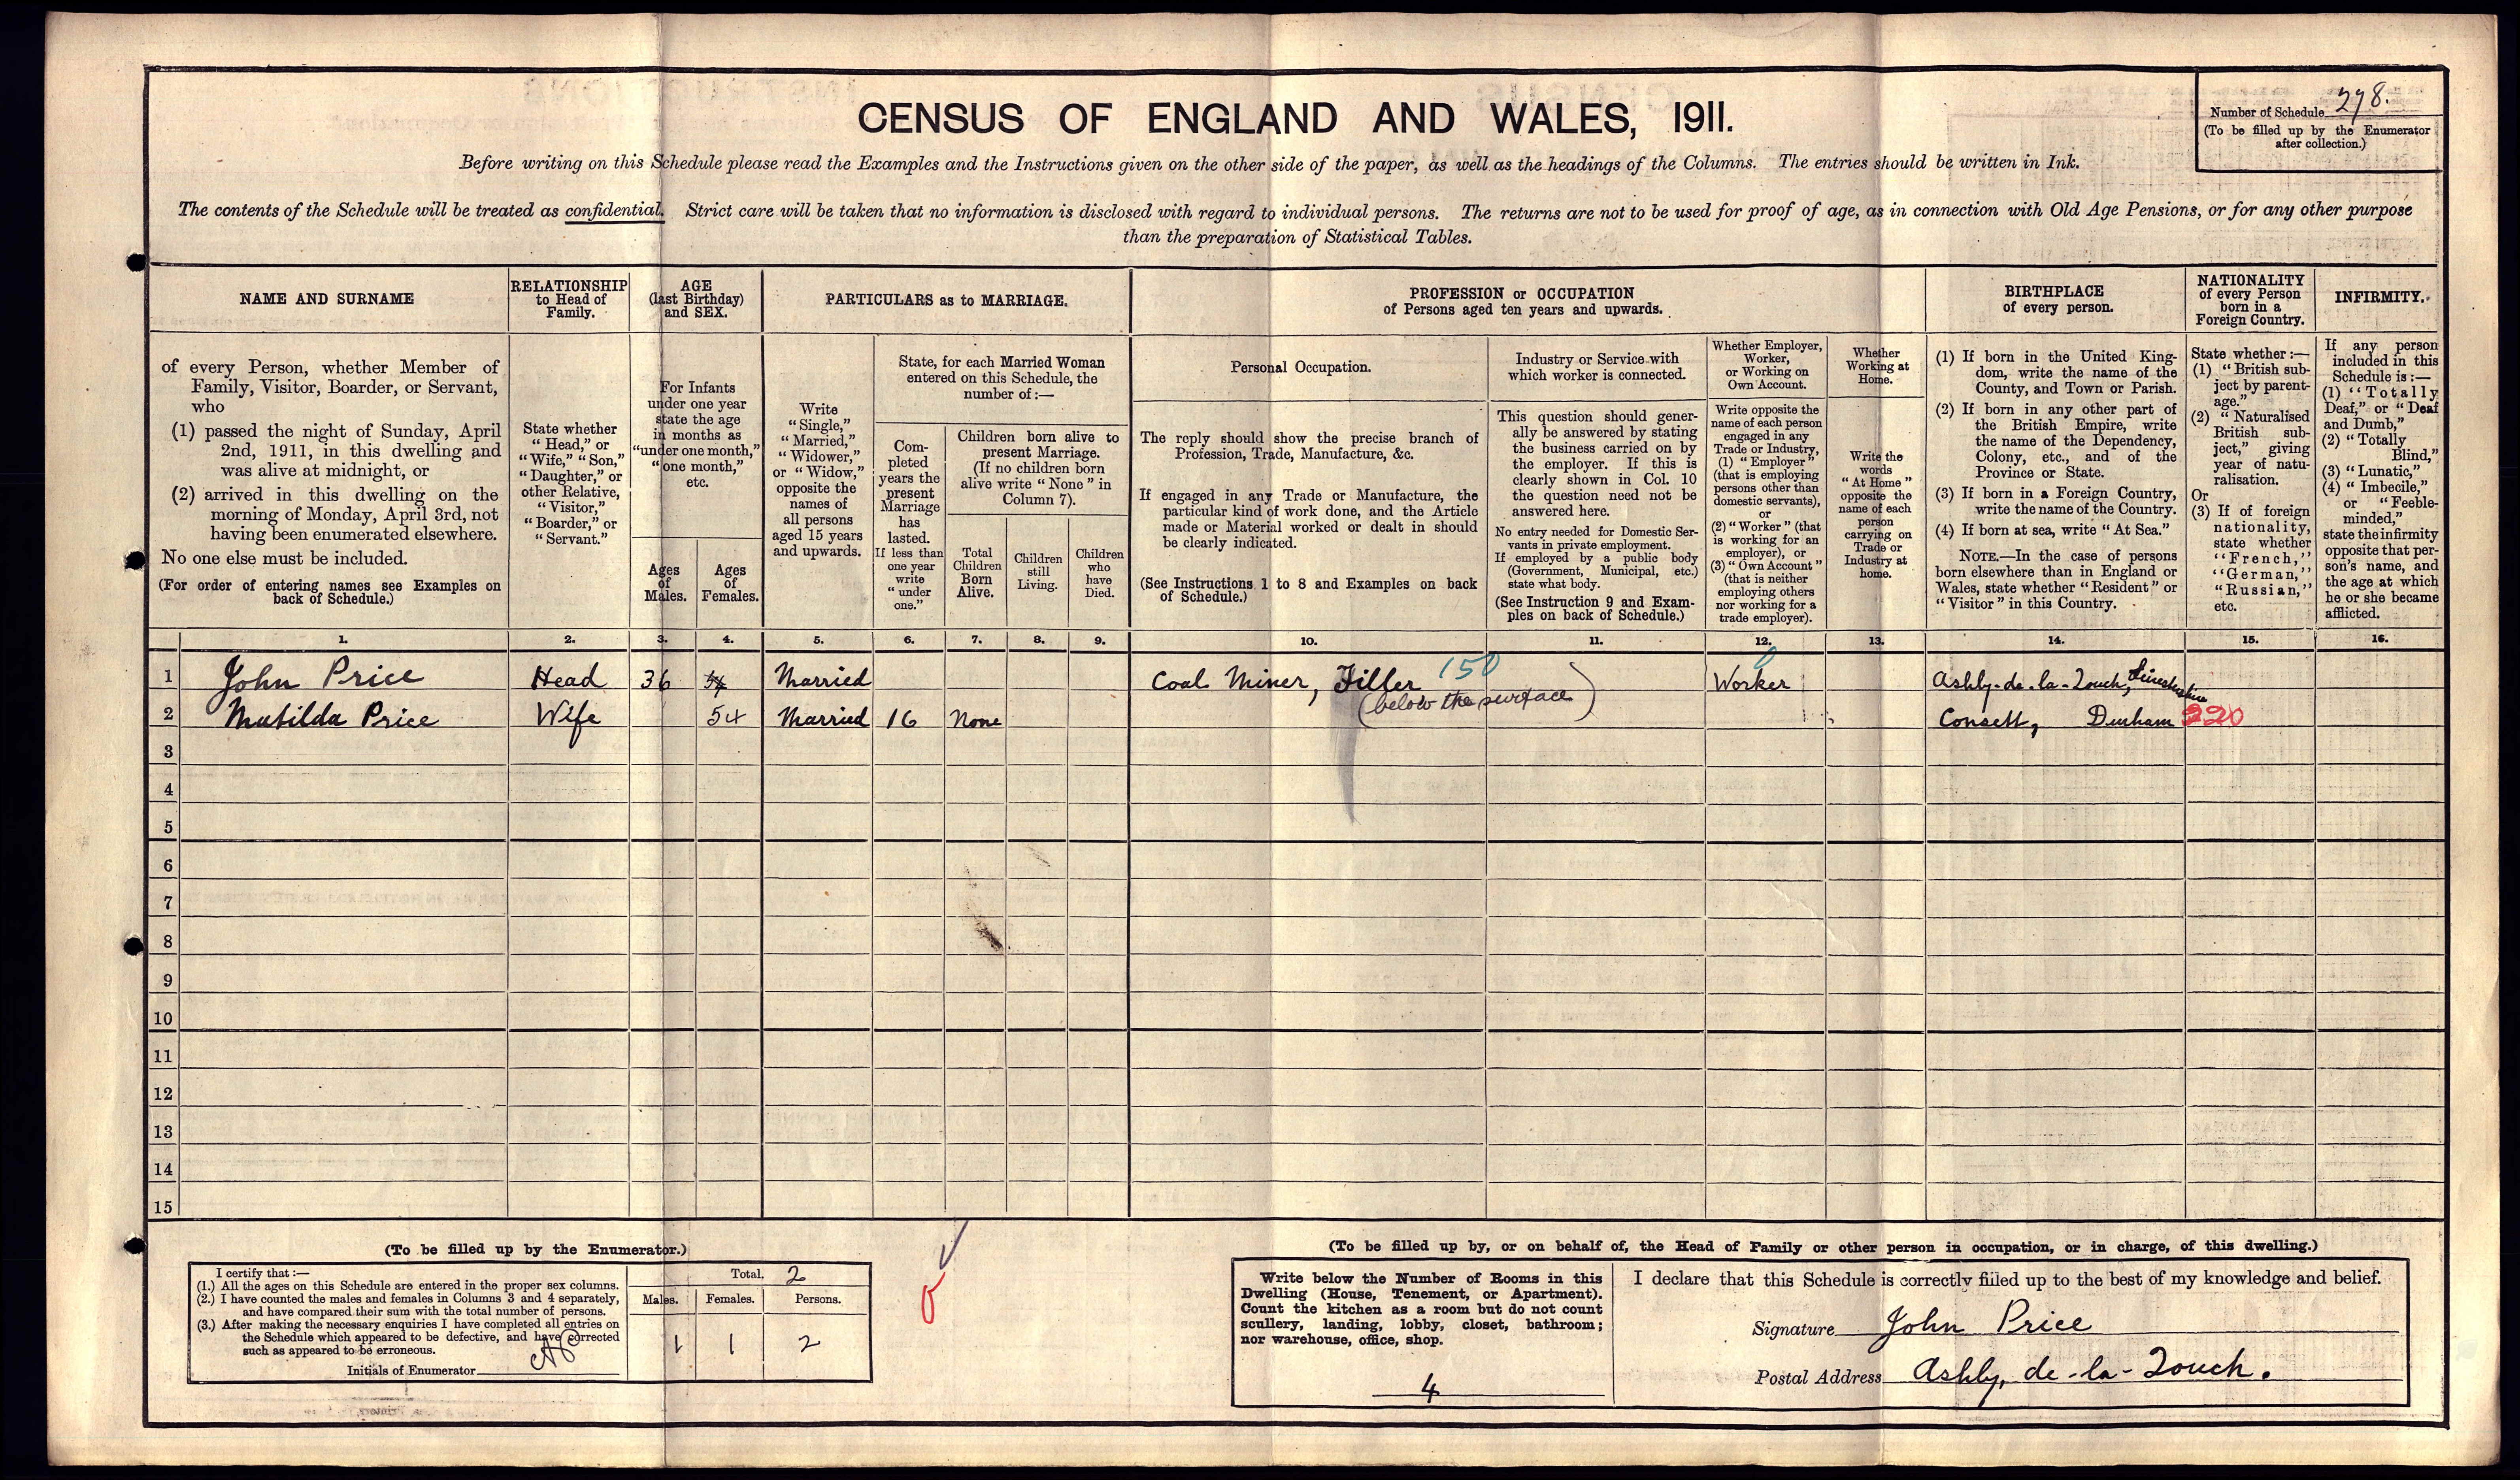 CENSUS OF ENGLAND AND WALES, 1911.
Number of Schedule 278.
(To be filled up by the Enumerator
after collection.)
Before writing on this Schedule please read the Examples and the Instructions given on the other side of the paper, as well as the headings of the Columns. The entries should be written in Ink.
The contents of the Schedule will be treated as confidential. Strict care will be taken that no information is disclosed with regard to individual persons. The returns are not to be used for proof of age, as in connection with Old Age Pensions, or for any other purpose
than the preparation of Statistical Tables.
NAME AND SURNAME
of every Person, whether Member of
Family, Visitor, Boarder, or Servant,
who
(1) passed the night of Sunday, April
2nd, 1911, in this dwelling and
was alive at midnight, or
(2) arrived in this dwelling on the
morning of Monday, April 3rd, not
having been enumerated elsewhere.
No one else must be included.
(For order of entering names see Examples on
back of Schedule.)
RELATIONSHIP
to Head of
Family.
State whether
"Head," or
"Wife," "Son,"
"Daughter," or
other Relative,
"Visitor,"
"Boarder," or
"Servant."
AGE
(last Birthday)
and SEX.
For Infants
under one year
state the age
in months as
"under one month,"
"one month,"
etc.
Ages
of
Males.
Ages
of
Females.
PARTICULARS as to MARRIAGE.
Write
"Single,"
"Married,"
"Widower,"
or "Widow,"
opposite the
names of
all persons
aged 15 years
and upwards.
State, for each Married Woman
entered on this Schedule, the
number of:—
Com-
pleted
years the
present
Marriage
has
lasted.
If less than
one year
write
"under
one."
Children born alive to
present Marriage.
(If no children born
alive write "None" in
Column 7).
Total
Children
Born
Alive.
Children
still
Living.
Children
who
have
Died.
PROFESSION or OCCUPATION
of Persons aged ten years and upwards.
Personal Occupation.
The reply should show the precise branch of
Profession, Trade, Manufacture, &c.
If engaged in any Trade or Manufacture, the
particular kind of work done, and the Article
made or Material worked or dealt in should
be clearly indicated.
(See Instructions 1 to 8 and Examples on back
of Schedule.)
Industry or Service with
which worker is connected.
This question should gener-
ally be answered by stating
the business carried on by
the employer. If this is
clearly shown in Col. 10
the question need not be
answered here.
No entry needed for Domestic Ser-
vants in private employment.
If employed by a public body
(Government, Municipal, etc.)
state what body.
(See Instruction 9 and Exam-
ples on back of Schedule.)
Whether Employer,
Worker,
or Working on
Own Account.
Write opposite the
name of each person
engaged in any
Trade or Industry,
(1) "Employer"
(that is employing
persons other than
domestic servants),
or
(2) "Worker" (that
is working for an
employer), or
(3) "Own Account"
(that is neither
employing others
nor working for a
trade employer).
Whether
Working at
Home.
Write the
words
"At Home"
opposite the
name of each
person
carrying on
Trade or
Industry at
home.
BIRTHPLACE
of every person.
(1) If born in the United King-
dom, write the name of the
County, and Town or Parish.
(2) If born in any other part of
the British Empire, write
the name of the Dependency,
Colony, etc., and of the
Province or State.
(3) If born in a Foreign Country,
write the name of the Country.
(4) If born at sea, write "At Sea."
NOTE.—In the case of persons
born elsewhere than in England or
Wales, state whether "Resident" or
"Visitor" in this Country.
NATIONALITY
of every Person
born in a
Foreign Country.
State whether:—
(1) "British sub-
ject by parent-
age."
(2) "Naturalised
British sub-
ject," giving
year of natu-
ralisation.
Or
(3) If of foreign
nationality,
state whether
"French,"
"German,"
"Russian,"
etc.
INFIRMITY.
If any person
included in this
Schedule is:—
(1) "Totally
Deaf," or "Deaf
and Dumb,"
(2) "Totally
Blind,"
(3) "Lunatic,"
(4) "Imbecile,"
or "Feeble-
minded,"
state the infirmity
opposite that per-
son's name, and
the age at which
he or she became
afflicted.
1. 2. 3. 4. 5. 6. 7. 8. 9. 10. 11. 12. 13. 14. 15. 16.
1 John Price Head 36 54 Married Coal Miner, Filler 150 Worker 0 Ashby-de-la-Zouch,
(below the surface)
2 Matilda Price Wife 54 Married 16 None Consett, Durham 220
3
4
5
6
7
8
9
10
11
12
13
14
15
(To be filled up by the Enumerator.)
I certify that:—
(1.) All the ages on this Schedule are entered in the proper sex columns.
(2.) I have counted the males and females in Columns 3 and 4 separately,
and have compared their sum with the total number of persons.
(3.) After making the necessary enquiries I have completed all entries on
the Schedule which appeared to be defective, and have corrected
such as appeared to be erroneous.
Initials of Enumerator
Total. 2
Males. Females. Persons.
1 1 2
(To be filled up by, or on behalf of, the Head of Family or other person in occupation, or in charge, of this dwelling.)
Write below the Number of Rooms in this
Dwelling (House, Tenement, or Apartment).
Count the kitchen as a room but do not count
scullery, landing, lobby, closet, bathroom;
nor warehouse, office, shop.
4
I declare that this Schedule is correctly filled up to the best of my knowledge and belief.
Signature John Price
Postal Address Ashby, de-la-Zouch.